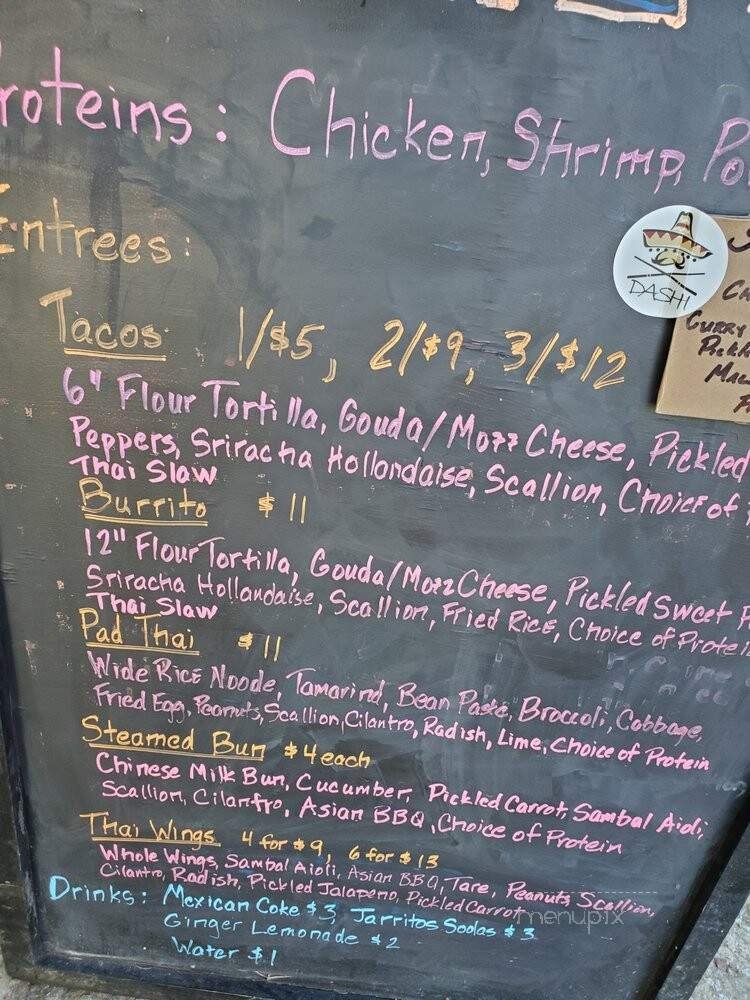 roteins: Chicken, Shrimp, Po
Entrees:
DASHI
Tacos 1/$5, 2/$9, 3/$12
6" Flour Tortilla, Gouda/Mozz Cheese, Pickled
Peppers, Sriracha Hollandaise, Scallion, Choice of
Thai Slaw
Burrito $11
12" Flour Tortilla, Gouda/Mozz Cheese, Pickled Sweet P
Sriracha Hollandaise, Scallion, Fried Rice, Choice of Protein
Thai Slaw
Pad Thai $11
Wide Rice Noode, Tamarind, Bean Paste, Broccoli, Cabbage,
Fried Egg, Peanuts, Scallion, Cilantro, Radish, Lime, Choice of Protein
Steamed Bun $4 each
Chinese Milk Bun, Cucumber, Pickled Carrot, Sambal Aioli,
Scallion, Cilantro, Asian BBQ, Choice of Protein
Thai Wings 4 for $9, 6 for $13
Whole Wings, Sambal Aioli, Asian BBQ, Tare, Peanuts, Scallion,
Cilantro, Radish, Pickled Jalapeno, Pickled Carrot
Drinks: Mexican Coke $3, Jarritos Sodas $3
Ginger Lemonade $2
Water $1
menupix
Curry